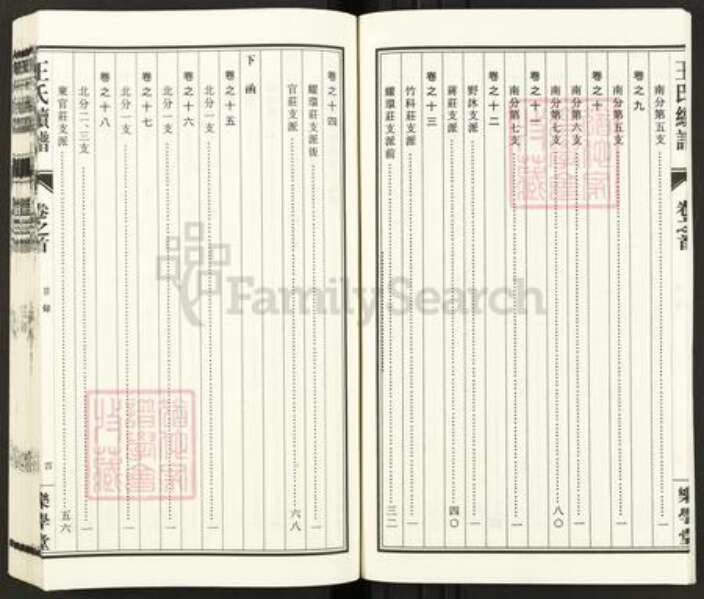 王氏續譜
卷之首
樂學堂
南分第五支 一
卷之九
南分第五支 一
卷之十
南分第六支 一
南分第七支 八〇
卷之十一
南分第七支 一
卷之十二
野沐支派 一
蔣莊支派 四〇
卷之十三
竹科莊支派 一
耀環莊支派前 三二
卷之十四
耀環莊支派後 一
官莊支派 六八
下函
卷之十五
北分一支 一
卷之十六
北分一支 一
卷之十七
北分一支 一
北分二、三支 一
卷之十八
東官莊支派 五六
王氏續譜
卷之首
目錄
四
樂學堂
FamilySearch